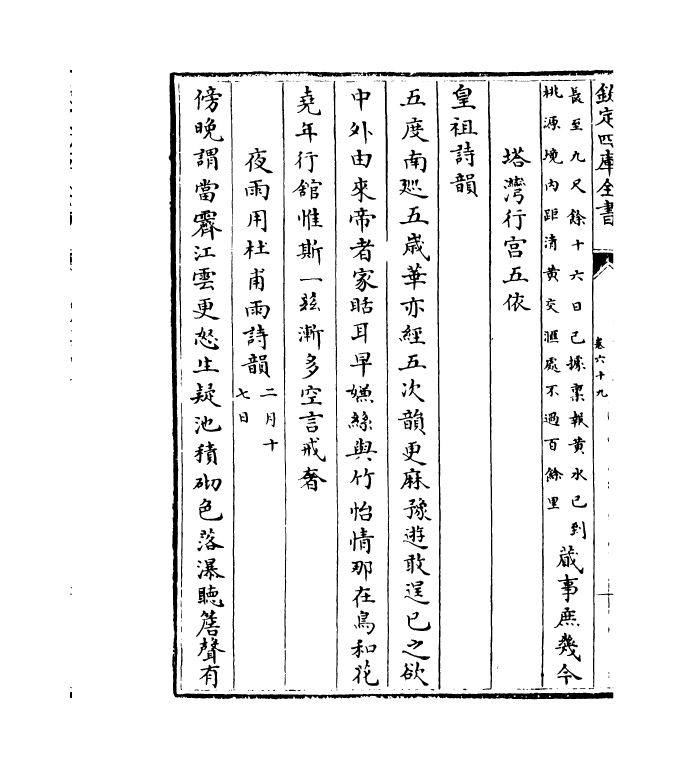 欽定四庫全書
卷六十九
長至九尺餘十六日已據稟報黄水已到
桃源境内距清黄交滙處不過百餘里
蕆事庶幾今
塔灣行宫五依
皇祖詩韻
五度南廵五歲華亦經五次韻更麻豫遊敢逞己之欲
中外由來帝者家聒耳早嫌絲與竹怡情那在鳥和花
堯年行舘惟斯一玆漸多空言戒奢
夜雨用杜甫雨詩韻二月十七日
傍晩謂當霽江雲更怒生疑池積砌色落瀑聽簷聲有